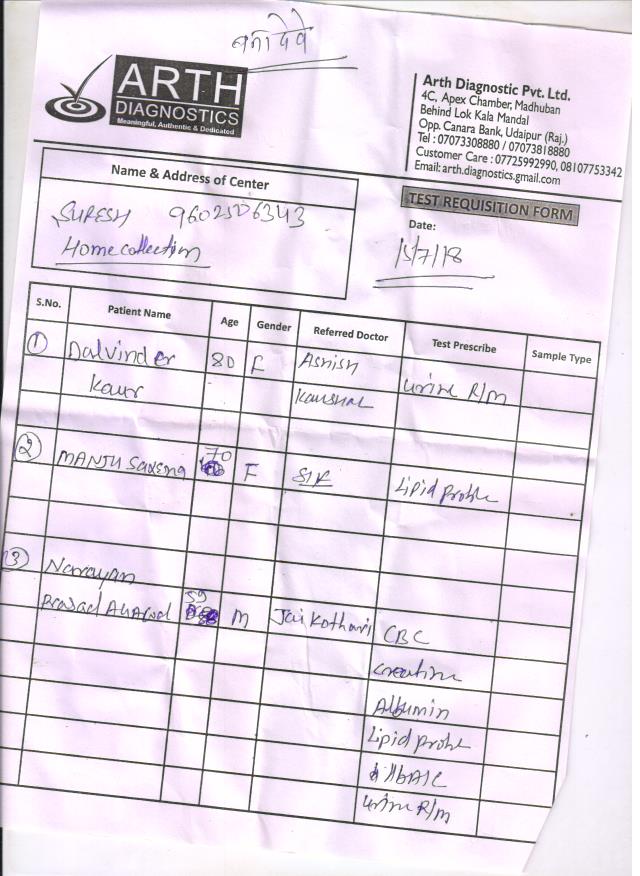 बनादेवे
ARTH
DIAGNOSTICS
Meaningful, Authentic & Dedicated
Arth Diagnostic Pvt. Ltd.
4C, Apex Chamber, Madhuban
Behind Lok Kala Mandal
Opp. Canara Bank, Udaipur (Raj.)
Tel : 07073308880 / 07073818880
Customer Care : 07725992990, 08107753342
Email: arth.diagnostics.gmail.com
Name & Address of Center
SURESH 9602506343
Home collection
TEST REQUISITION FORM
Date:
15/7/18
S.No. Patient Name Age Gender Referred Doctor Test Prescribe Sample Type
1 Dalvinder 80 F Ashish Urine R/m
Kaur Kaushal
2 MANJU Saxena 70 F SIR Lipid profile
3 Narayan
Prasad Agarwal 59 M Jai Kothari CBC
Creatine
Albumin
Lipid profile
HbA1C
Urine R/m